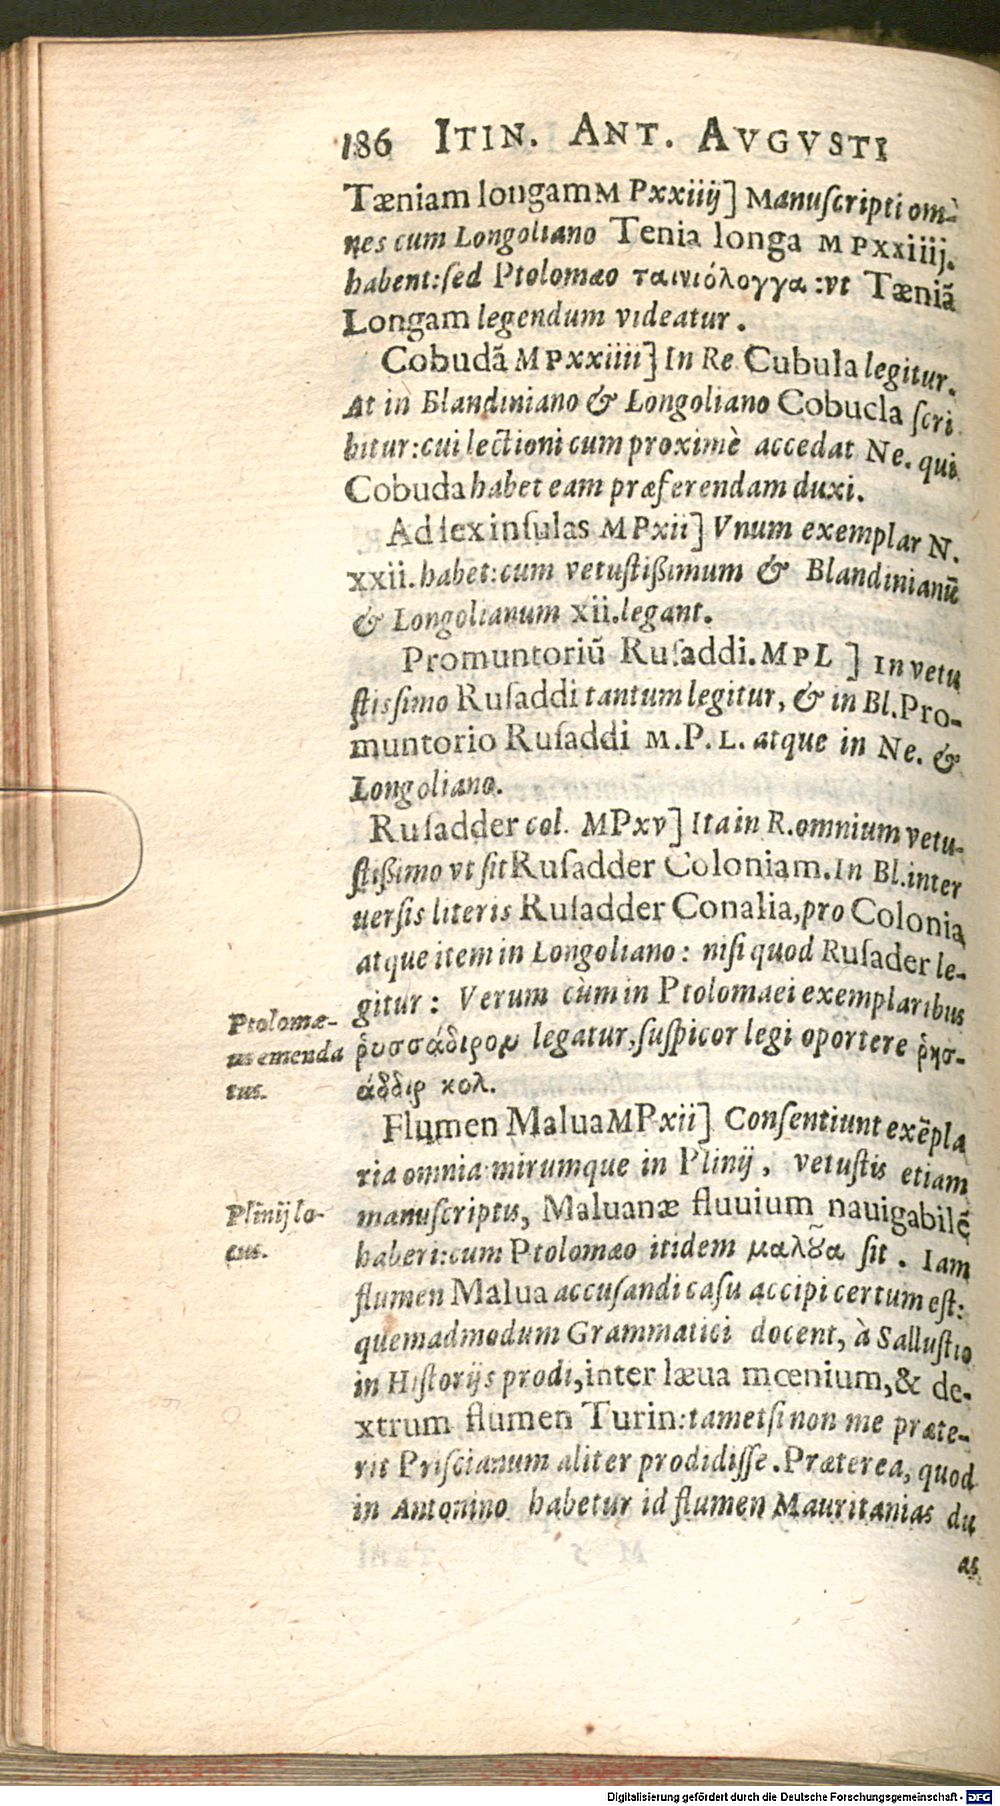 186 ITIN. ANT. AVGVSTI
Tæniam longam M Pxxiiij] Manuſcripti om̀-
nes cum Longoliano Tenia longa M PXxiiij.
habent: ſed Ptolomæo ταινιόλογγα :vt Tæniã
Longam legendum videatur.
Cobudã M Pxxiiii] In Re Cubula legitur.
At in Blandiniano & Longoliano Cobucla ſcri
bitur: cui lectioni cum proximè accedat Ne. qui
Cobuda habet eam præferendam duxi.
Ad ſex inſulas M Pxii] Vnum exemplar N.
xxii. habet: cum vetuſtißimum & Blandinianũ
& Longolianum xii. legant.
Promuntoriũ Ruſaddi. MPL ] In vetu
ſtisſimo Ruſaddi tantum legitur, & in Bl. Pro-
muntorio Ruſaddi M. P. L. atque in Ne. &
Longoliano.
Ruſadder col. MPxv] Ita in R. omnium vetu-
ſtißimo vt ſit Ruſadder Coloniam. In Bl. inter
uerſis literis Ruſadder Conalia, pro Colonia
atque item in Longoliano: niſi quod Ruſader le-
gitur: Verum cùm in Ptolomaei exemplaribus
Ptolomæ-
us emenda
tus.
ῥυσσάδιρον legatur, ſuſpicor legi oportere ῥησ-
άδδιρ κολ.
Flumen Malua MPxii] Conſentiunt exẽpla
ria omnia: mirumque in Plinij, vetuſtis etiam
Plinij lo-
cus.
manuſcriptis, Maluanæ fluuium nauigabilẽ
haberi: cum Ptolomæo itidem μαλȣ͂α ſit. Iam
flumen Malua accuſandi caſu accipi certum eſt:
quemadmodum Grammatici docent, à Salluſtio
in Hiſtorijs prodi, inter læua mœnium, & de-
xtrum flumen Turin: tametſi non me præte-
rit Priſcianum aliter prodidiſſe. Præterea, quod
in Antonino habetur id flumen Mauritanias du
as
Digitalisierung gefördert durch die Deutsche Forschungsgemeinschaft - DFG